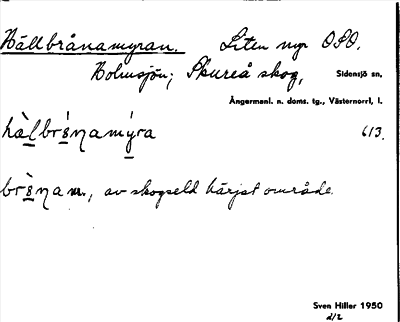 Hällbrånamyran. Liten myr OSO.
Holmsjön; Skureå skog, Sidensjö sn,
Ångermanl. n. doms. tg., Västernorrl, l.
613.
av skogseld härjat område.
Sven Hiller 1950